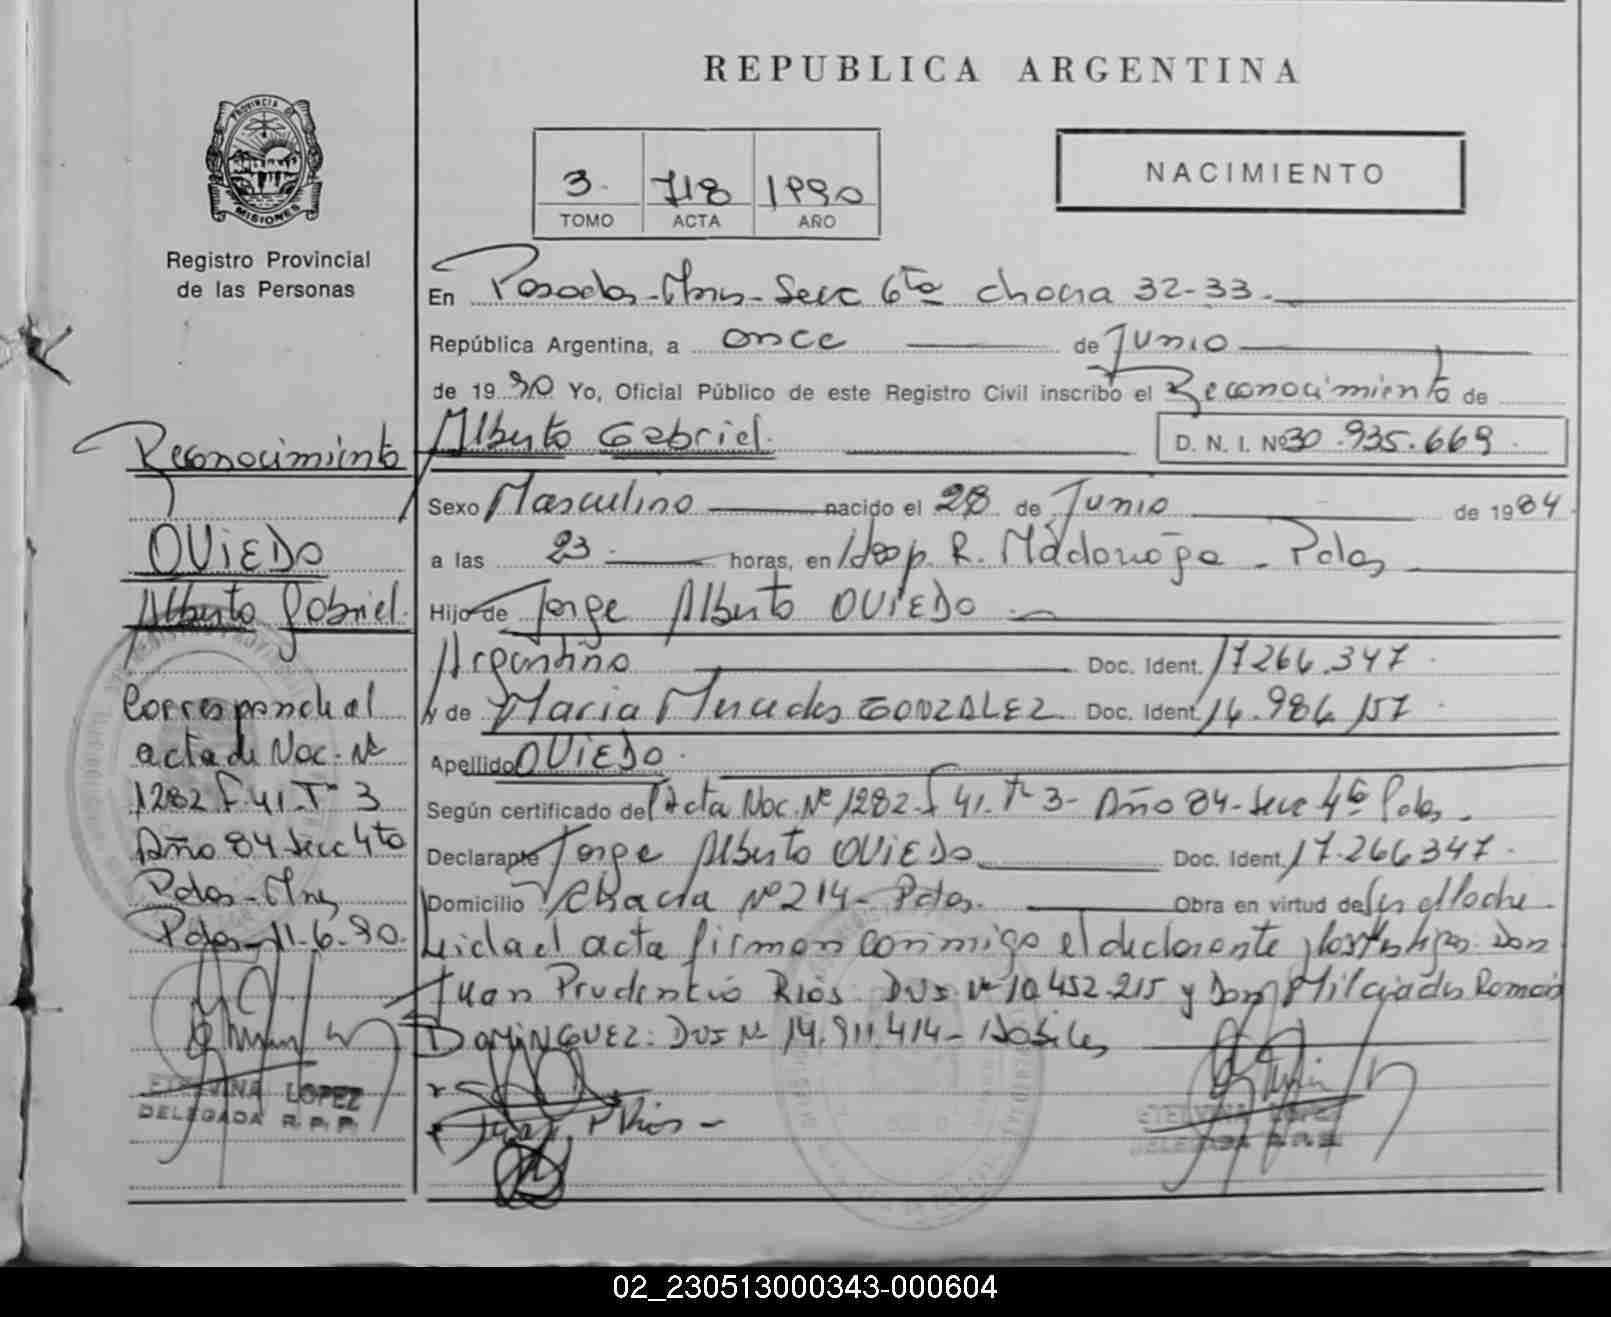 REPUBLICA ARGENTINA
PROVINCIA DE
MISIONES
Registro Provincial
de las Personas
3. 718 1990
TOMO ACTA AÑO
NACIMIENTO
En Posadas-Mnes-Secc 6ta chacra 32-33.
República Argentina, a once de Junio
de 1990 Yo, Oficial Público de este Registro Civil inscribo el Reconocimiento de
Alberto Gabriel. D. N. I. Nº 30.935.669.
Sexo Masculino nacido el 28 de Junio de 1984
a las 23. horas, en Hosp. R. Madariaga - Pdas
Hijo de Jorge Alberto OVIEDO
Argentino Doc. Ident. 17266.347.
y de Maria Mercedes GONZALEZ Doc. Ident. 14.986.157.
Apellido OVIEDO.
Según certificado del Acta Nac. Nº 1282-f 41. Tº 3- Año 84-Secc 4ta Pdas.
Declarante Jorge Alberto OVIEDO Doc. Ident. 17.266347.
Domicilio Chacra Nº 214- Pdas. Obra en virtud de
Leida el acta firman conmigo el declarante y los testigos: Don
Juan Prudentio Rios: DNI Nº 10.452.215 y Don Milciades Roman
DOMINGUEZ: DNI Nº 14.911.414- Habiles
Juan P Rios -
ETELVINA LOPEZ
DELEGADA R.P.P.
Reconocimiento
OVIEDO
Alberto Gabriel.
Corresponde al
acta de Nac. Nº
1282 f. 41. Tº 3
Año 84 Secc 4ta
Pdas-Mnes
Pdas-11-6-90.
ETELVINA LOPEZ
DELEGADA R. P. P.
02_230513000343-000604